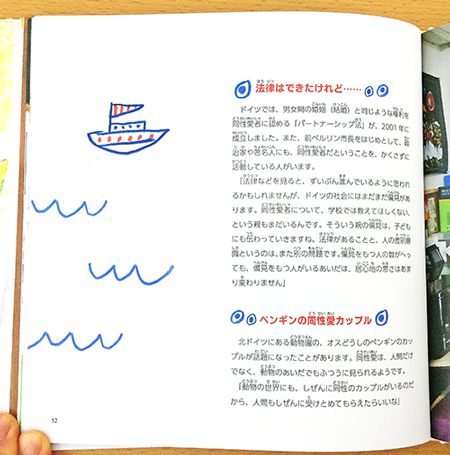 法律はできたけれど……
ドイツでは、男女間の婚姻(結婚)と同じような権利を
同性愛者に認める『パートナーシップ法』が、2001年に
成立しました。また、前ベルリン市長をはじめとして、政
治家や著名人にも、同性愛者だということを、かくさずに
活動している人がいます。
「法律などを見ると、ずいぶん進んでいるように思われ
るかもしれませんが、ドイツの社会にはまだまだ偏見があ
ります。同性愛者について、学校では教えてほしくない、
という親もまだいるんです。そういう親の偏見は、子ども
にも伝わっていきますね。法律があることと、人の差別意
識というのは、また別の問題です。偏見をもつ人の数がへっ
ても、偏見をもつ人がいるあいだは、居心地の悪さはあま
り変わりません」
ペンギンの同性愛カップル
北ドイツにある動物園の、オスどうしのペンギンのカッ
プルが話題になったことがあります。同性愛は、人間だけ
でなく、動物のあいだでもふつうに見られるようです。
「動物の世界にも、しぜんに同性のカップルがいるのだ
から、人間もしぜんに受けとめてもらえたらいいな」
52